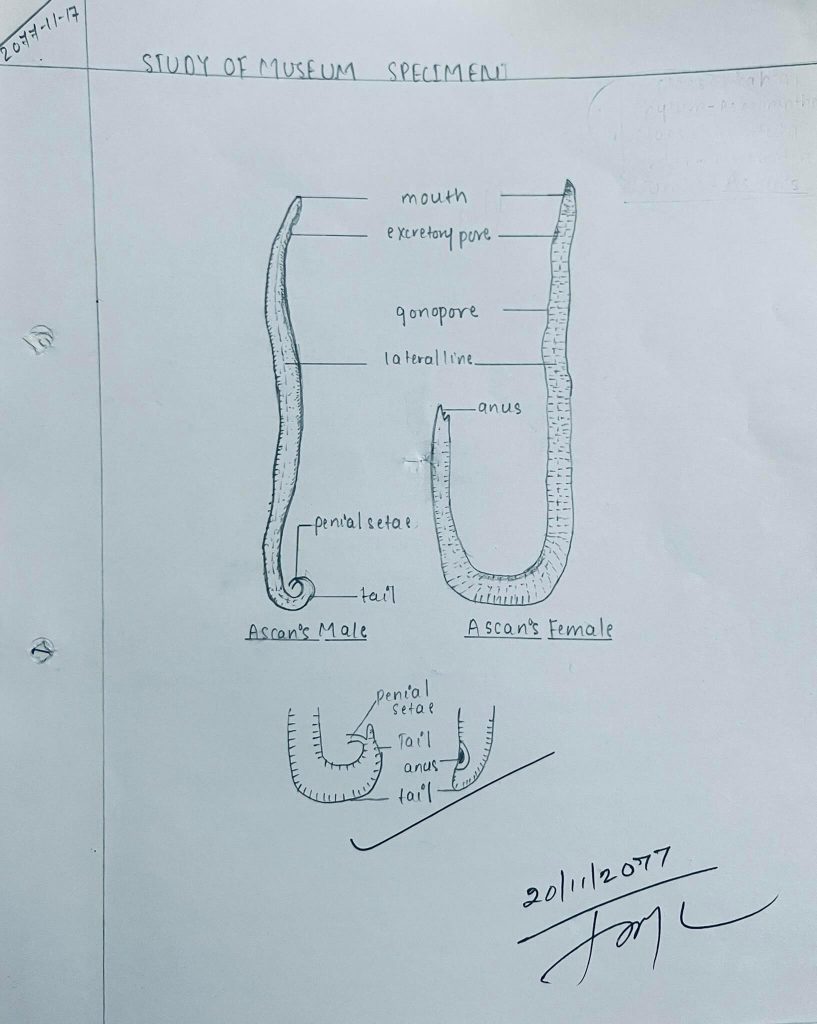 2077-11-17
STUDY OF MUSEUM SPECIMENT
mouth
excretory pore
gonopore
lateral line
anus
penial setae
tail
Ascaris Male
Ascaris Female
penial
setae
Tail
anus
tail
20/11/2077